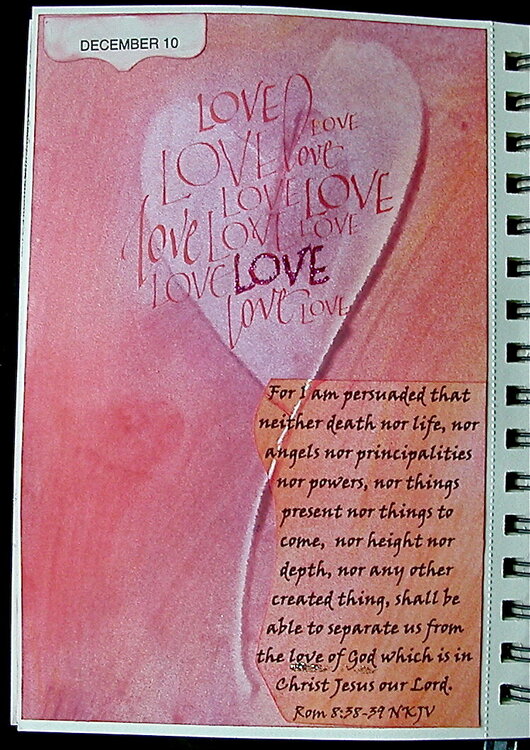 DECEMBER 10
LOVE
LOVE
LOVE
love
LOVE
LOVE
love
LOVE
LOVE
LOVE
LOVE
love
LOVE
For I am persuaded that
neither death nor life, nor
angels nor principalities
nor powers, nor things
present nor things to
come, nor height nor
depth, nor any other
created thing, shall be
able to separate us from
the love of God which is in
Christ Jesus our Lord.
Rom 8:38-39 NKJV